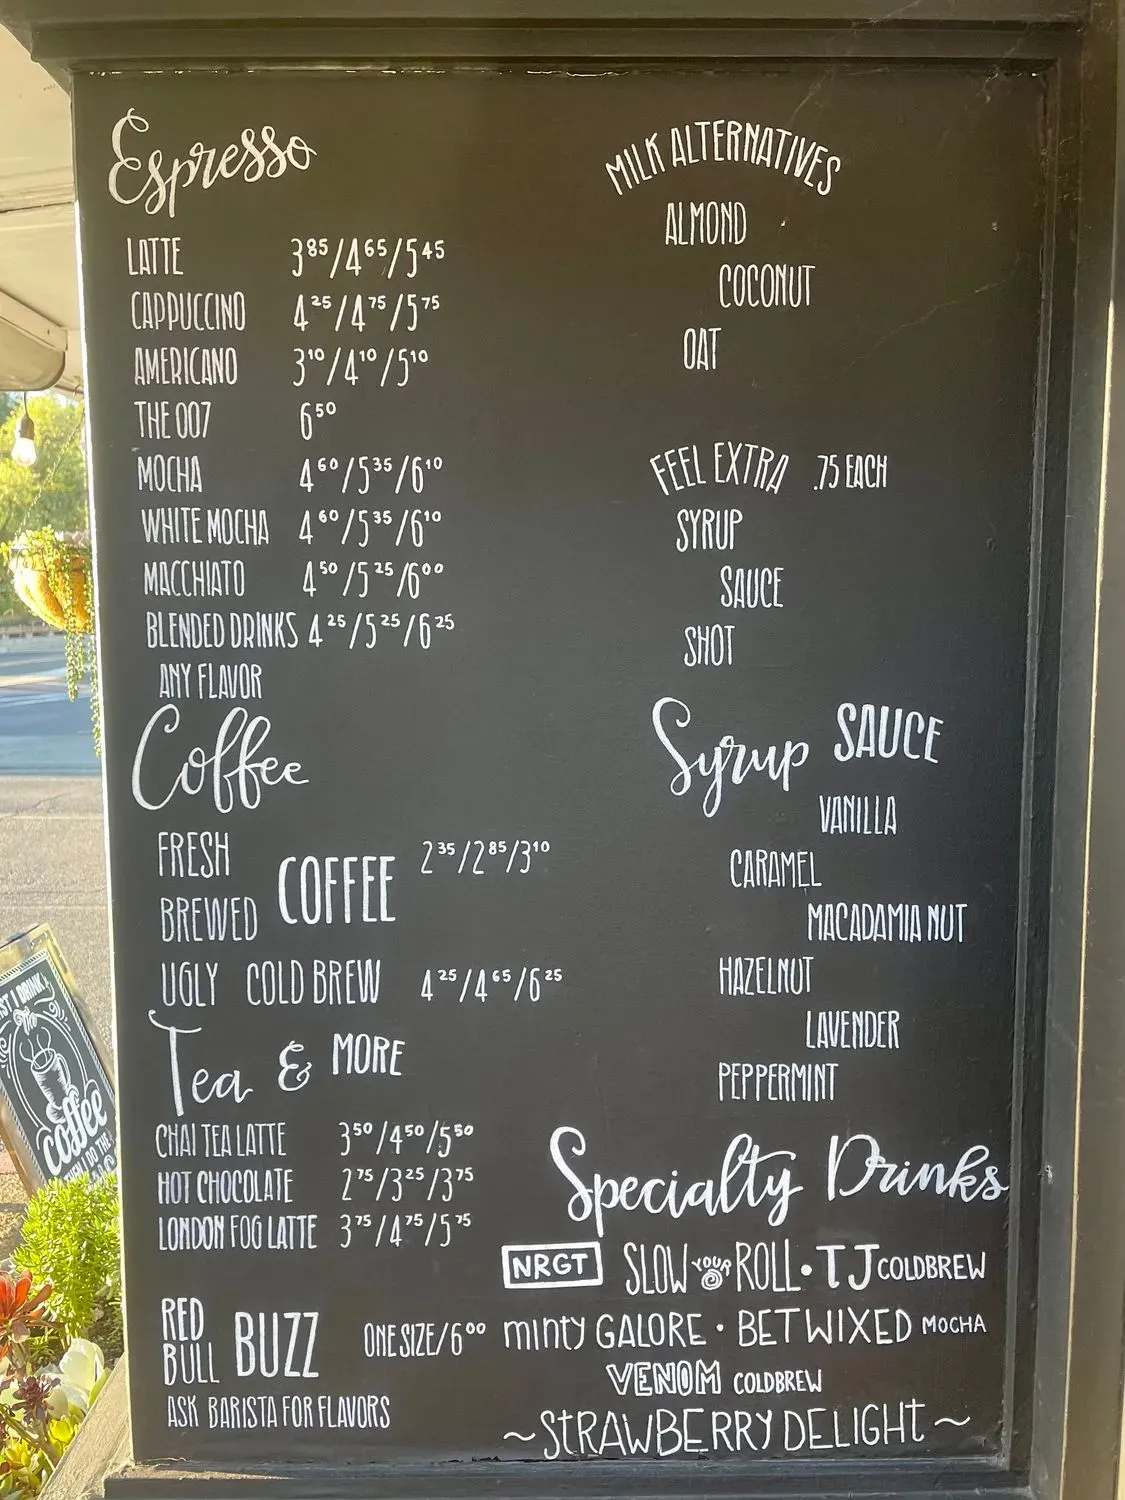 Espresso
LATTE 3⁸⁵/4⁶⁵/5⁴⁵
CAPPUCCINO 4²⁵/4⁷⁵/5⁷⁵
AMERICANO 3¹⁰/4¹⁰/5¹⁰
THE 007 6⁵⁰
MOCHA 4⁶⁰/5³⁵/6¹⁰
WHITE MOCHA 4⁶⁰/5³⁵/6¹⁰
MACCHIATO 4⁵⁰/5²⁵/6⁰⁰
BLENDED DRINKS 4²⁵/5²⁵/6²⁵
ANY FLAVOR
Coffee
FRESH
BREWED COFFEE 2³⁵/2⁸⁵/3¹⁰
UGLY COLD BREW 4²⁵/4⁶⁵/6²⁵
Tea & MORE
CHAI TEA LATTE 3⁵⁰/4⁵⁰/5⁵⁰
HOT CHOCOLATE 2⁷⁵/3²⁵/3⁷⁵
LONDON FOG LATTE 3⁷⁵/4⁷⁵/5⁷⁵
RED
BULL BUZZ ONE SIZE/6⁰⁰
ASK BARISTA FOR FLAVORS
MILK ALTERNATIVES
ALMOND
COCONUT
OAT
FEEL EXTRA .75 EACH
SYRUP
SAUCE
SHOT
Syrup SAUCE
VANILLA
CARAMEL
MACADAMIA NUT
HAZELNUT
LAVENDER
PEPPERMINT
Specialty Drinks
NRGT SLOW YOUR ROLL • TJ COLDBREW
minty GALORE • BETWIXED MOCHA
VENOM COLDBREW
~ StRAWBERRY DELIGHt ~
I DRINK
coffee
THEN I DO THE